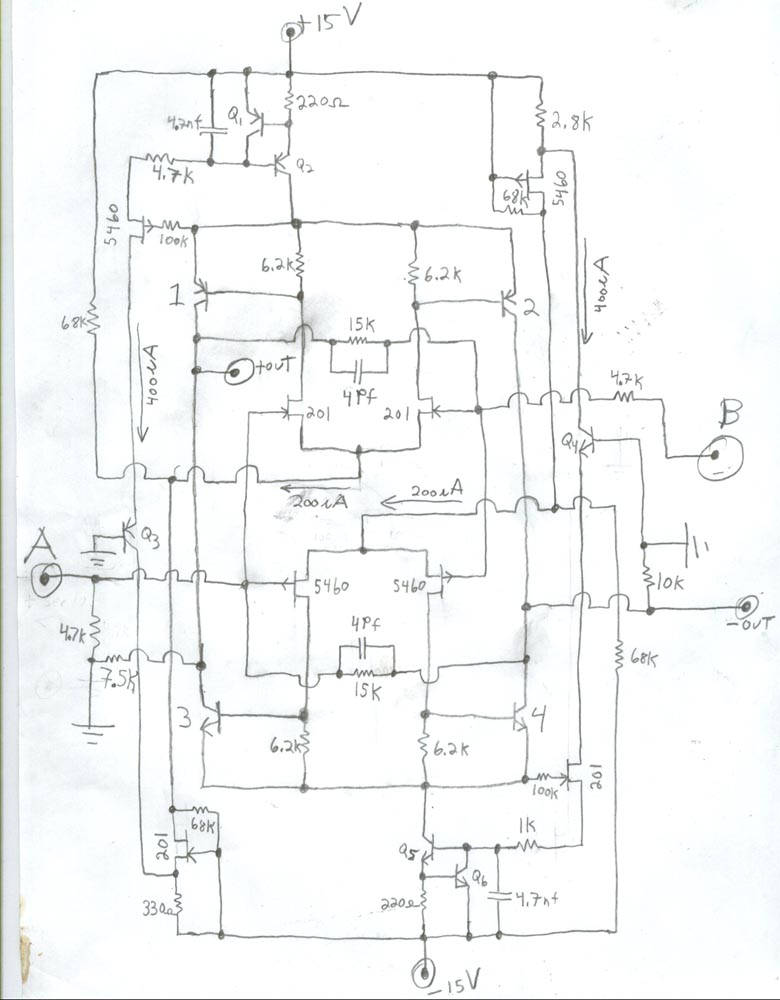 +15V
220Ω
4.7nf
Q1
Q2
2.8K
4.7K
5460
68K
5460
100K
6.2K
6.2K
400uA
1
2
15K
68K
4Pf
+OUT
400uA
4.7K
201
201
B
Q4
200uA
200uA
Q3
A
5460
5460
10K
-OUT
4.7K
4Pf
7.5K
15K
68K
3
4
6.2K
6.2K
100K
201
68K
201
1K
Q5
Q6
330Ω
220Ω
4.7nf
-15V